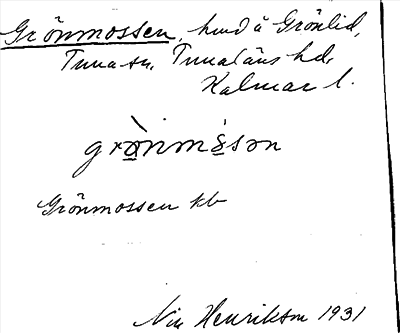 Grönmossen, hmd å Grönlid,
Tuna sn. Tunaläns hd,
Kalmar l.
grònmśson
Grönmossen kb
Nils Henrikson 1931